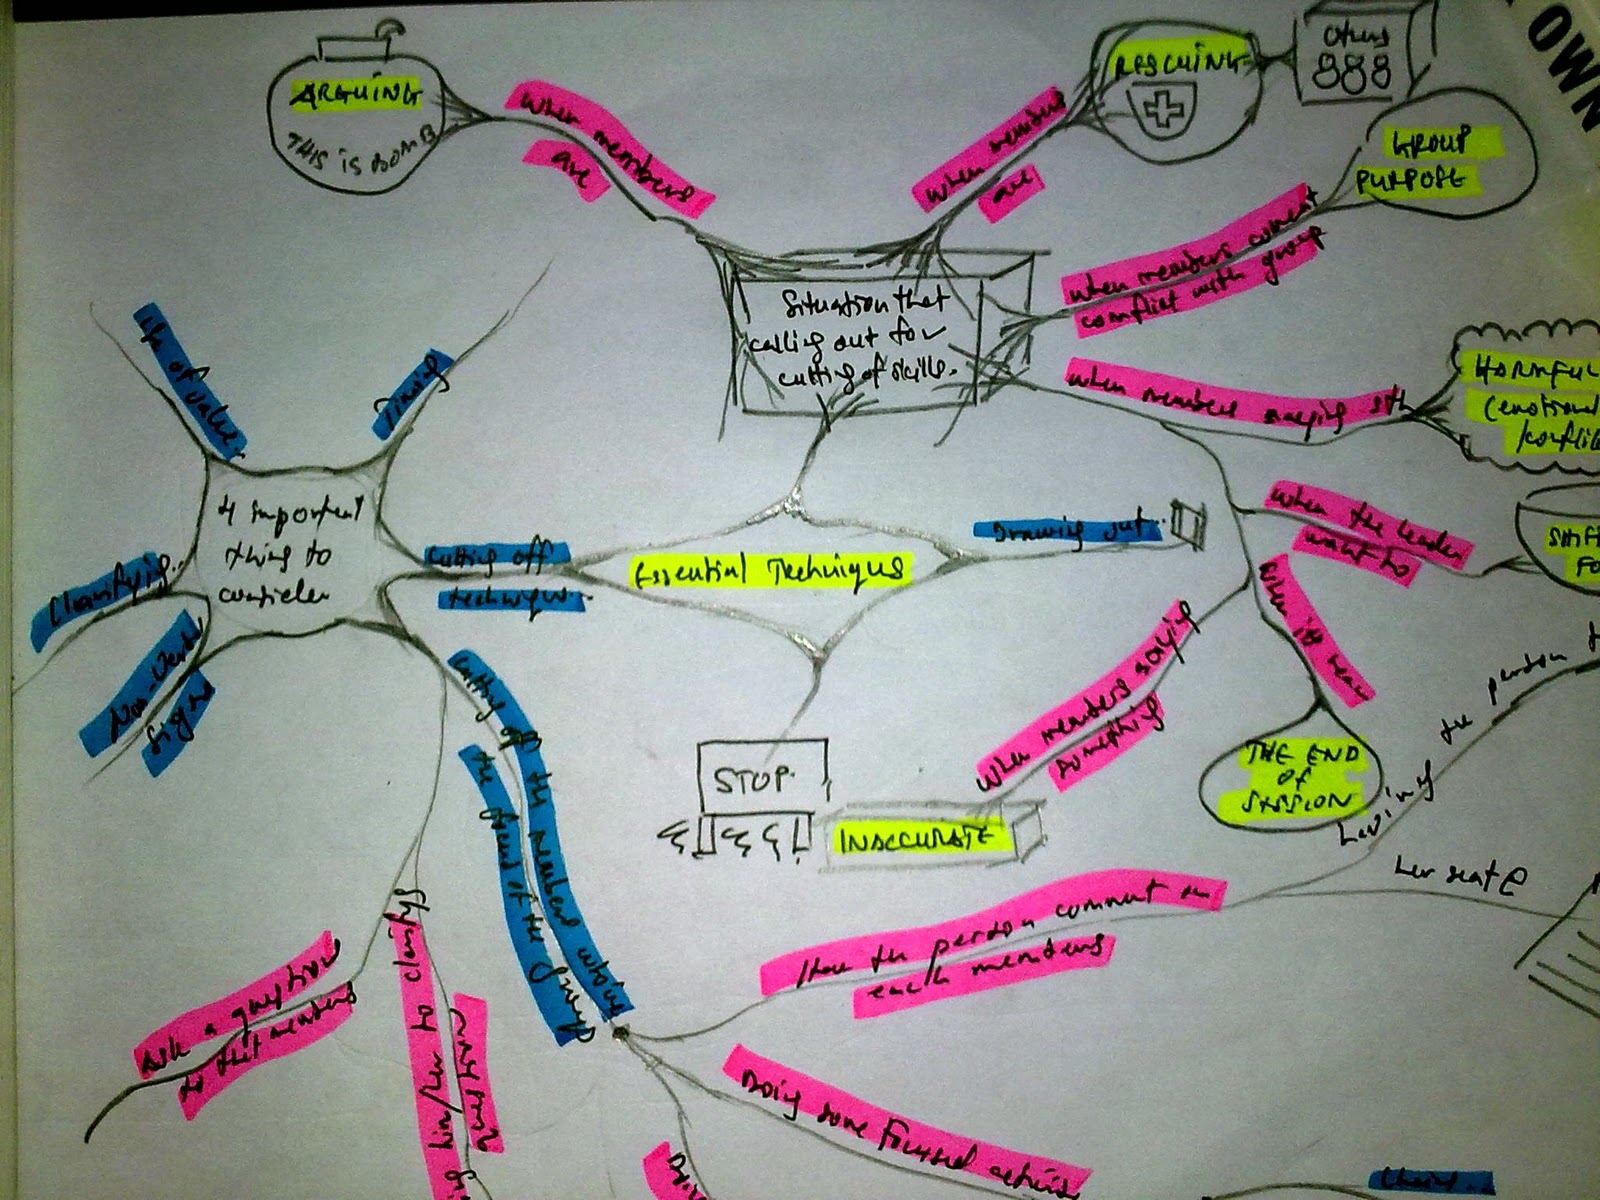 ARGUING
THIS IS BOMB
When members
are
when members
are
RESCUING
others
GROUP
PURPOSE
OWN
when members coment
conflict with group
Situation that
calling out for
cutting of skills.
when members saying sth
HARMFUL
(emotional
/conflic
Timing
of value
4 important
thing to
consider
Clarifying..
Non-verbal
signs
Cutting off
technique..
Essential Technique
Drawing out..
when the leader
want to
SHIF
FO
when it near
THE END
OF
SESSION
when members saying
something
STOP.
INACCURATE
cutting off the members whose
the friend of the group
Have the person comment on
each members
Leaving
the person
her seat
Doing some focused activi
Ask a question
to that members
him/her to clarify
question